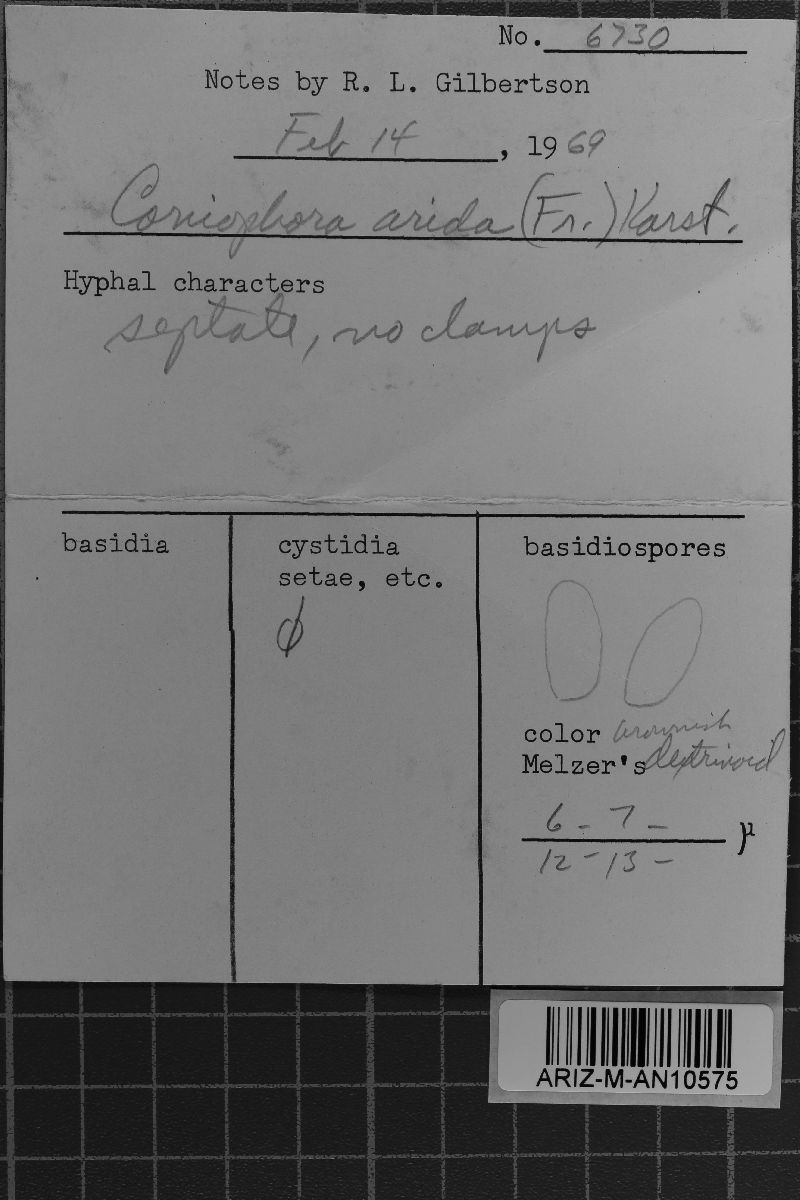 No. 6730
Notes by R. L. Gilbertson
Feb 14, 1969
Coniophora arida (Fr.) Karst.
Hyphal characters
septate, no clamps
basidia
cystidia
setae, etc.
ϕ
basidiospores
color brownish
Melzer's dextrinoid
6 - 7 -
12 - 13 -
µ
ARIZ-M-AN10575